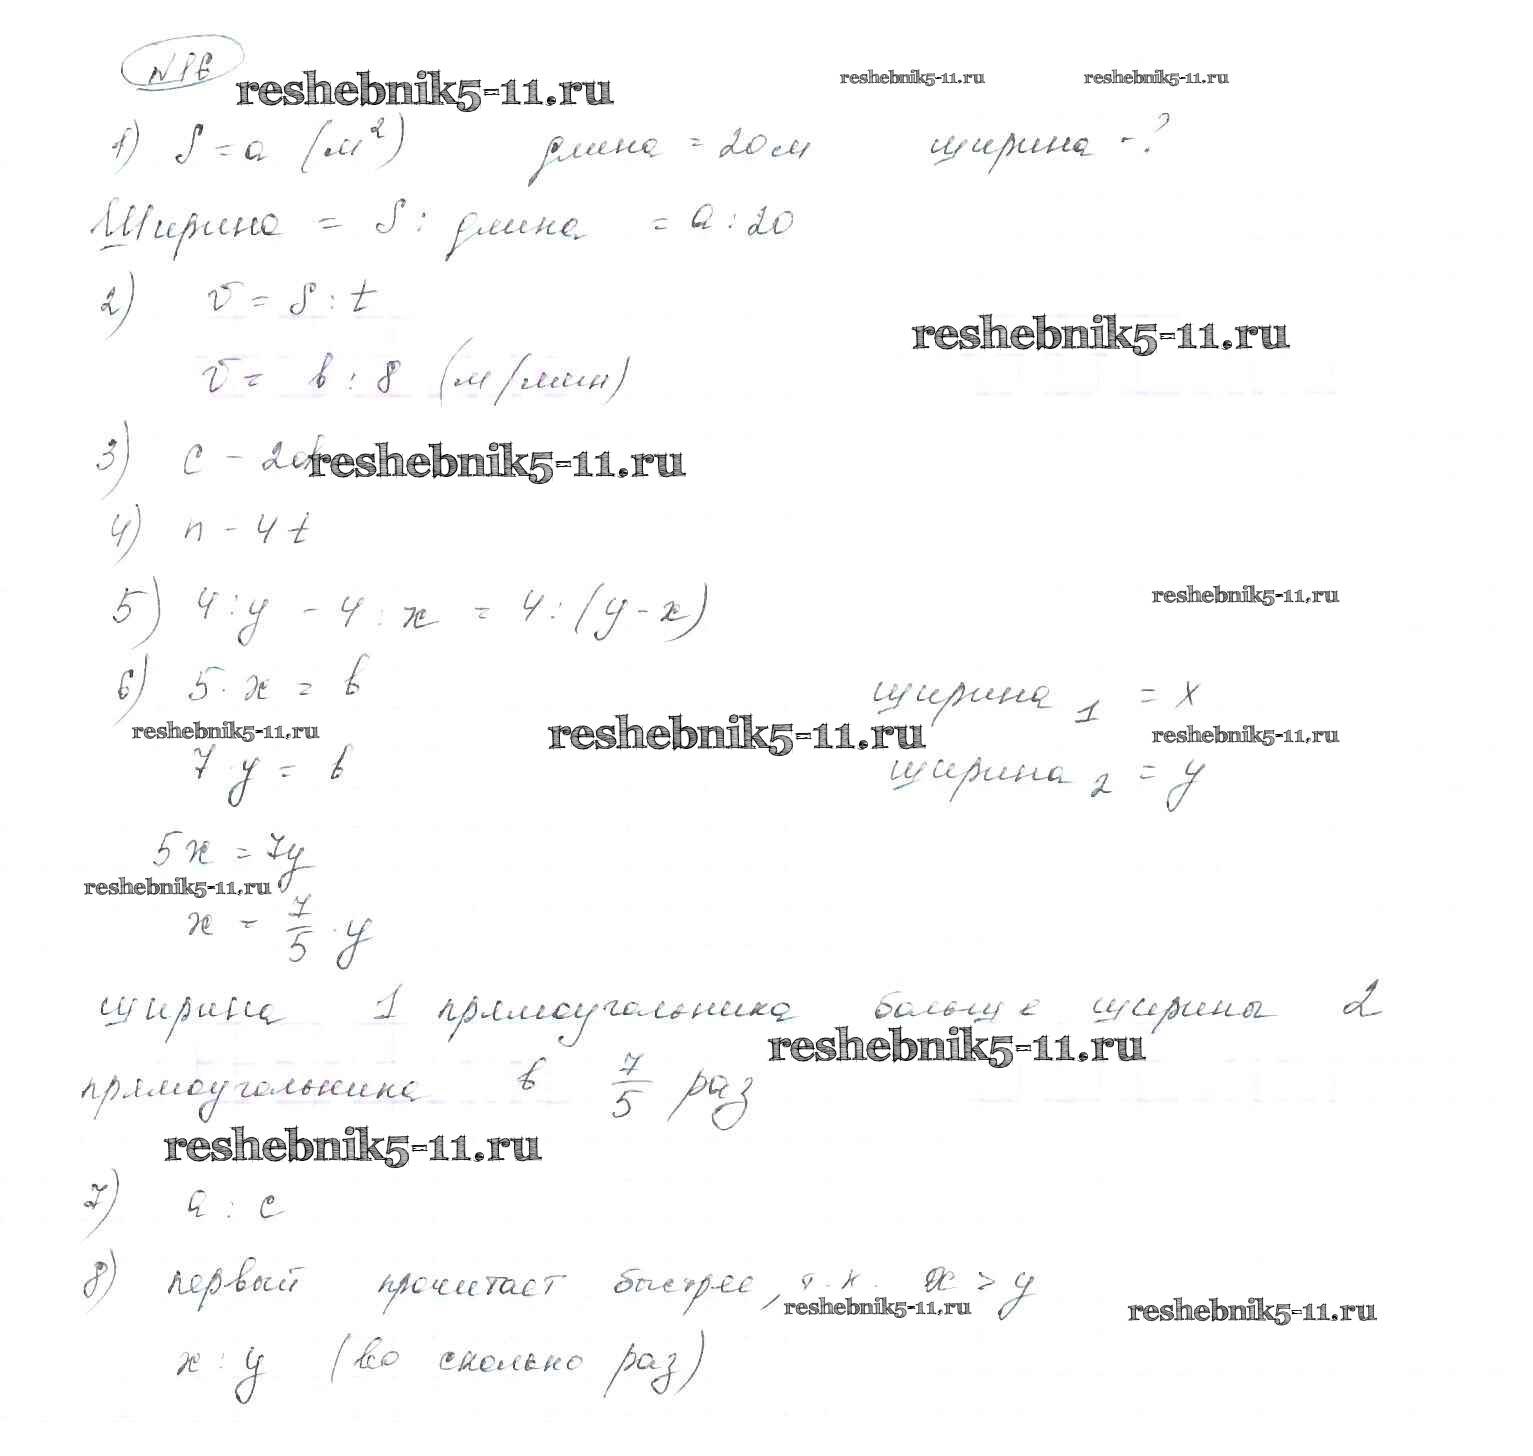 reshebnik5-11.ru reshebnik5-11.ru reshebnik5-11.ru
1) S = a (м²) длина = 20м ширина - ?
Ширина = S : длина = a : 20
2) v = S : t
reshebnik5-11.ru
v = b : 8 (м/мин)
3) c - 20
reshebnik5-11.ru
4) n - 4t
reshebnik5-11.ru
5) 4 : y - 4 : x = 4 : (y - x)
6) 5 · x = b ширина 1 = x
reshebnik5-11.ru reshebnik5-11.ru reshebnik5-11.ru
7 · y = b ширина 2 = y
5x = 7y
reshebnik5-11.ru
x = 7/5 · y
ширина 1 прямоугольника больше ширины 2
reshebnik5-11.ru
прямоугольника в 7/5 раз
reshebnik5-11.ru
7) a : c
8) первый прочитает быстрее, т.к. x > y
reshebnik5-11.ru reshebnik5-11.ru
x : y (во сколько раз)